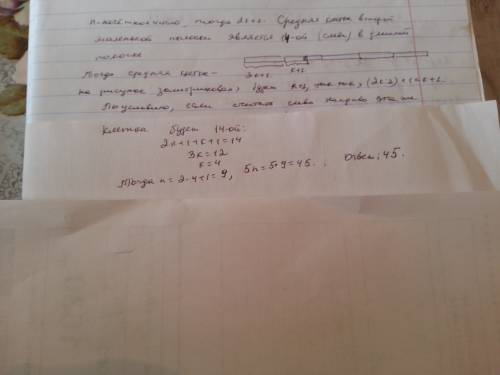 n-нечетное число, тогда 2k+1. Средняя клетка второй
маленькой полоски является 14-ой (слева) в длинной
полоске
2k+1 k+1
Тогда средняя клетка-
на рисунке заштрихована, будет k+1, так как,
По условию, если считать слева направо эта же
клетка будет 14-ой:
2k+1+k+1=14
3k=12
k=4
Тогда n=2·4+1=9, 5n=5*9=45. Ответ: 45.